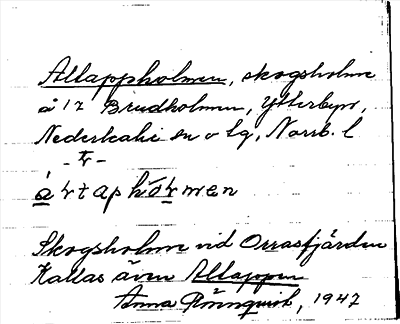 Allappholmen, skogsholme
å 17 Brudholmen, Ytterbyn,
Nederkalix sn o tg, Norrb. l
- tr -
Skogsholme vid Orrasfjärden
Kallas även Allappen
Anna Rönnquist, 1947